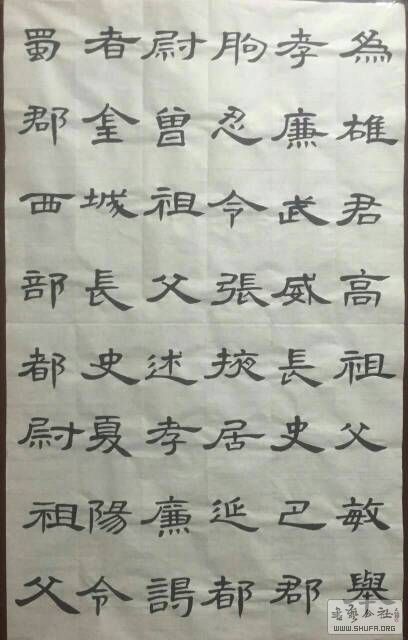 為雄君高祖父敏舉
孝廉武威長史巴郡
朐忍令張掖居延都
尉曾祖父述孝廉謁
者金城長史夏陽令
蜀郡西部都尉祖父
WWW.SHUFA.ORG